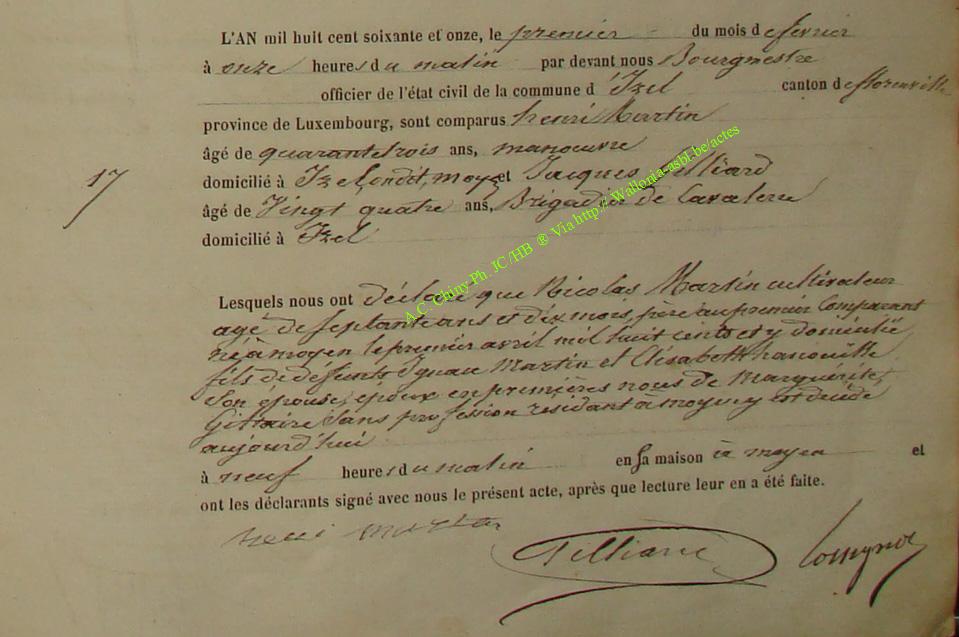 L'AN mil huit cent soixante et onze, le premier du mois de février
à onze heures du matin par devant nous Bourgmestre
officier de l'état civil de la commune d'Izel canton de florenville
province de Luxembourg, sont comparus henri Martin
âgé de quarantetrois ans, manoeuvre
17
domicilié à Izel et Jacques
âgé de Vingt quatre ans, Brigadier de Cavalerie
domicilié à Izel
Lesquels nous ont déclaré que Nicolas Martin cultivateur
agé de septante ans et dix mois, père au premier Comparant
né à moyen le premier avril mil huit cents et y domicilié
fils de défunts Martin et Elisabeth
Son épouse, époux en premières nous de Marguerite
sans profession résidant à moyen y est décédé
aujourd'hui
à neuf heures du matin en sa maison à moyen et
ont les déclarants signé avec nous le présent acte, après que lecture leur en a été faite.
henri Martin
A.C. Chiny Ph. JC /HB ® Via http://Wallonia-asbl.be/actes